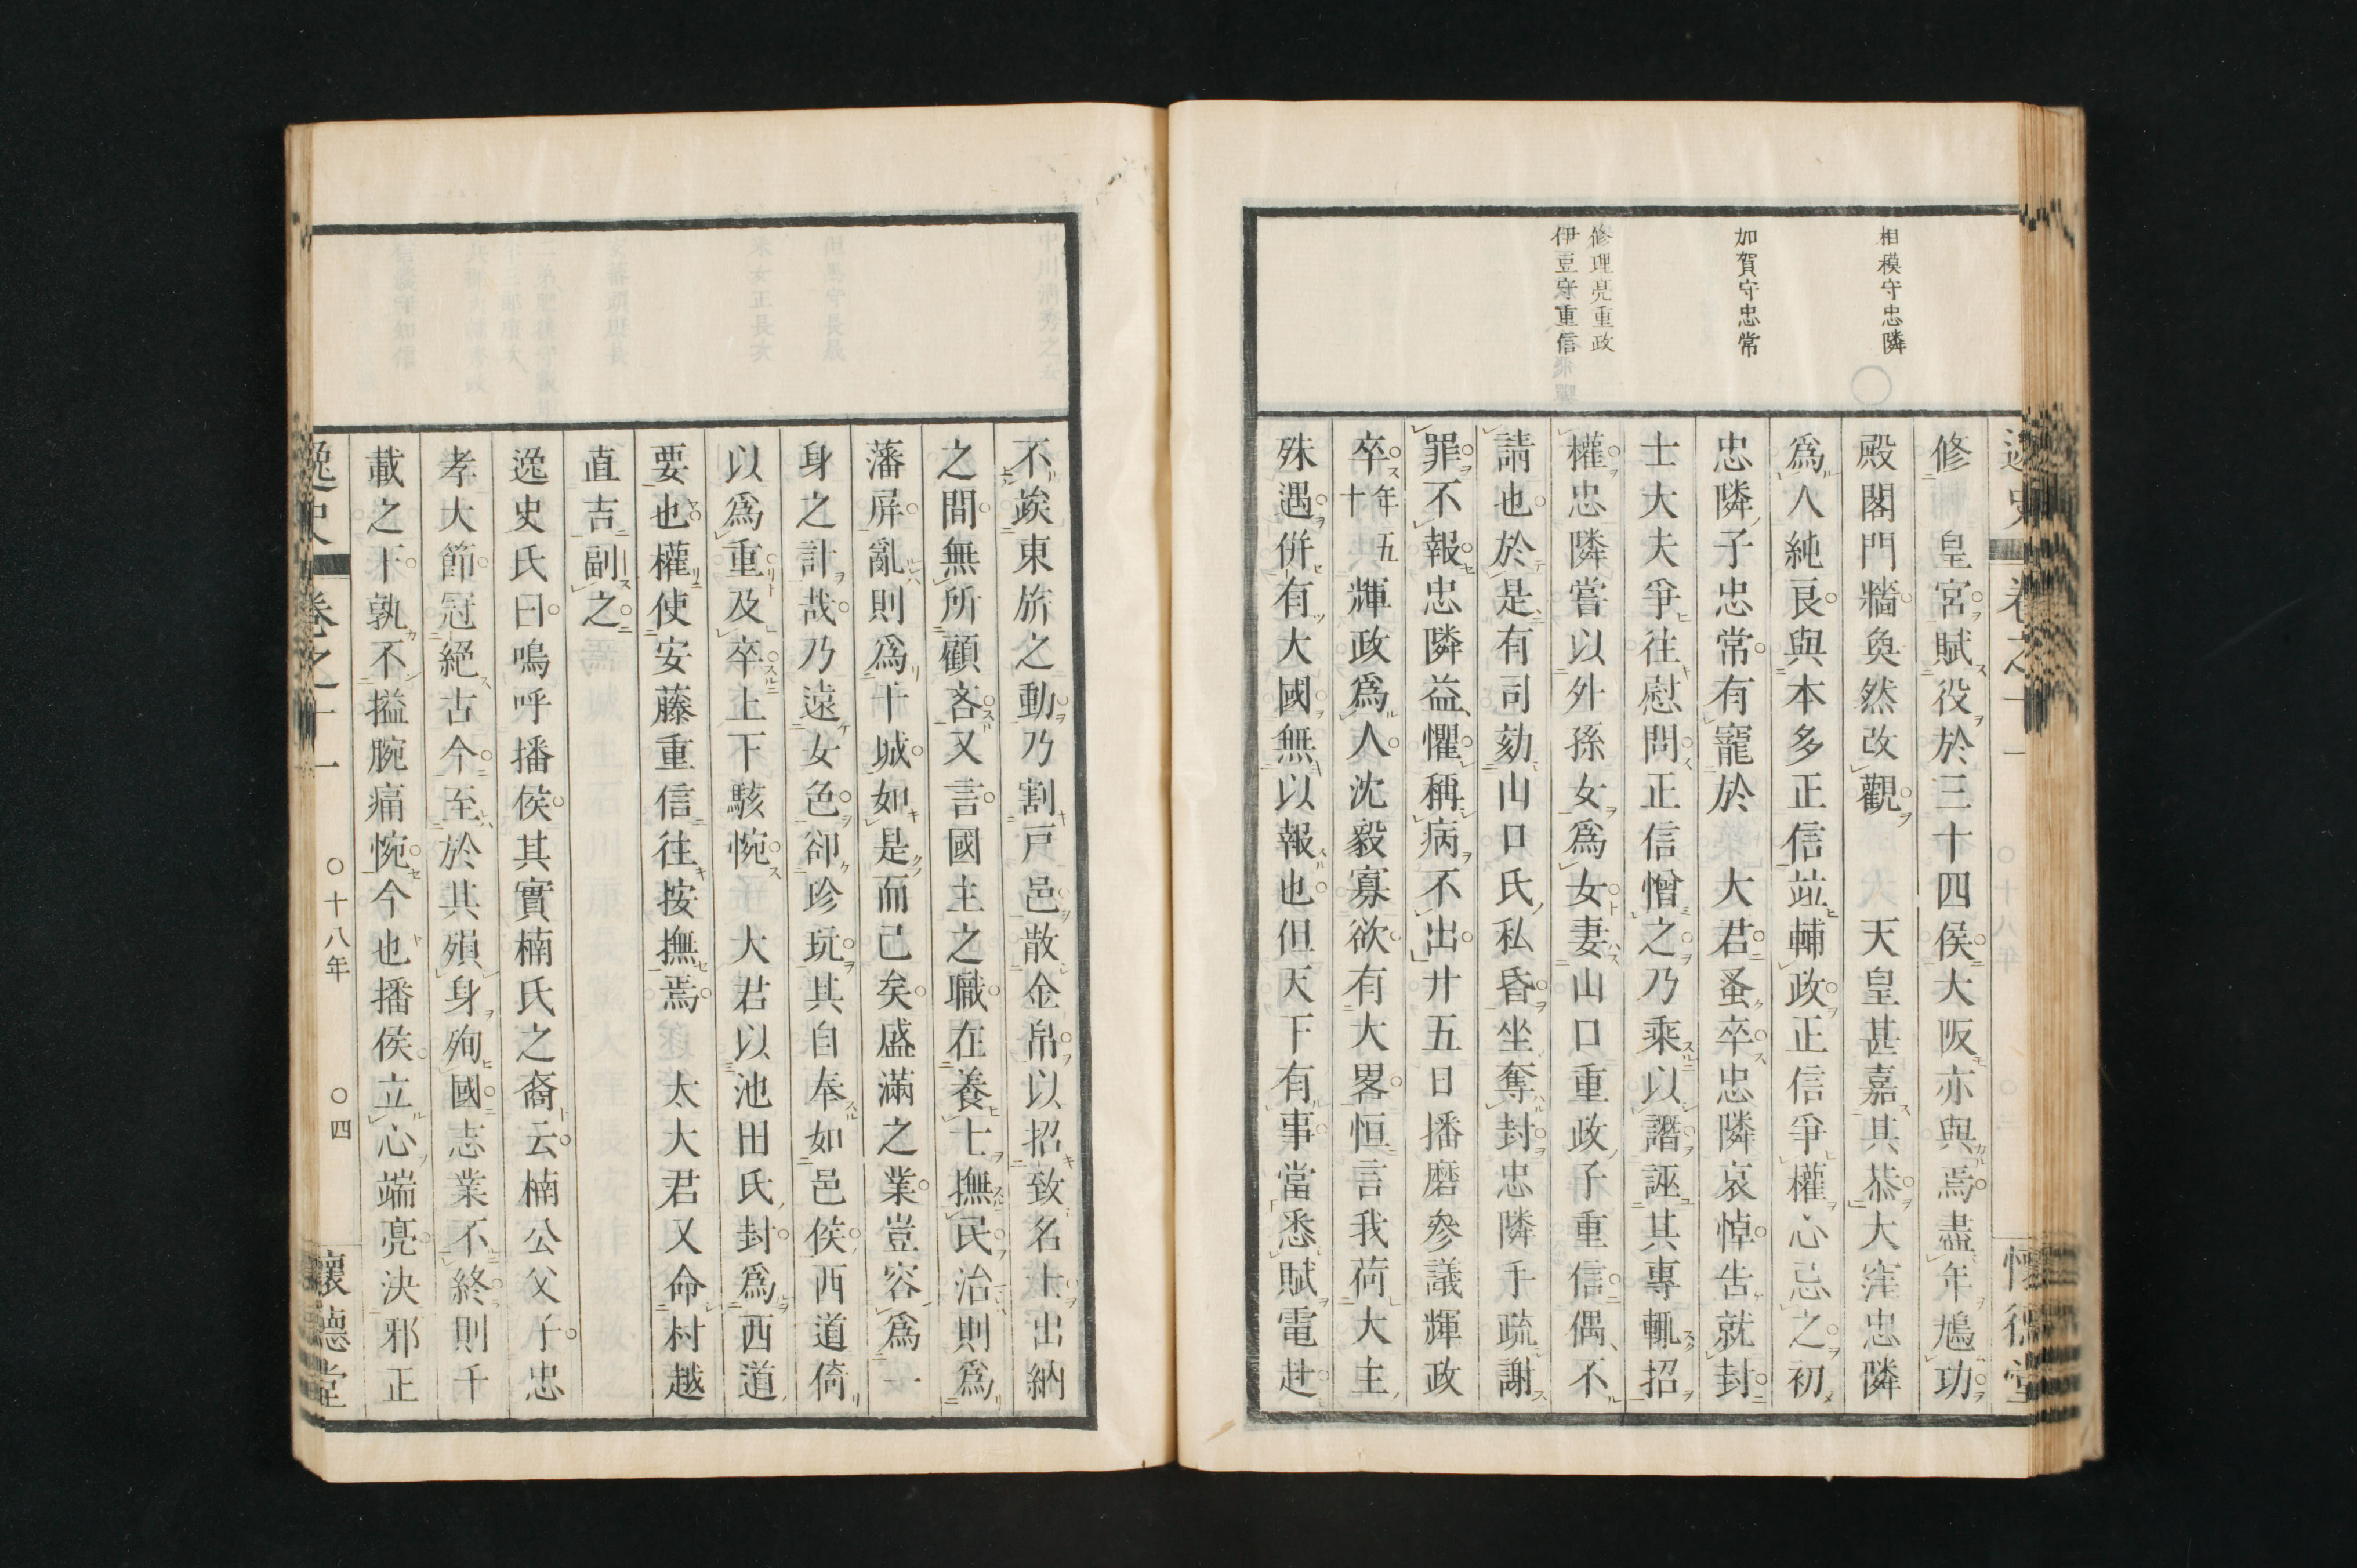 相模守忠隣
加賀守忠常
修理亮重政
伊豆守重信
修　皇宮賦役於三十四侯大阪亦與焉盡年鳩功
殿閣門牆奐然改觀　天皇甚嘉其恭大窪忠隣
爲人純良與本多正信竝輔政正信爭權心忌之初
忠隣子忠常有寵於　大君蚤卒忠隣哀悼告就封
士大夫爭往慰問正信憎之乃乘以譖誣其專輒招
權忠隣嘗以外孫女爲女妻山口重政子重信偶不
請也於是有司劾山口氏私昏坐奪封忠隣手疏謝
罪不報忠隣益懼稱病不出廿五日播磨參議輝政
卒年五十輝政爲人沈毅寡欲有大畧恒言我荷大主
殊遇併有大國無以報也但天下有事當悉賦電赴
不竢東旂之動乃割戸邑散金帛以招致名士出納
之間無所顧吝又言國主之職在養士撫民治則爲
藩屏亂則爲干城如是而已矣盛滿之業豈容爲一
身之計哉乃遠女色卻珍玩其自奉如邑侯西道倚
以爲重及卒上下駭惋　大君以池田氏封爲西道
要也權使安藤重信往按撫焉　太大君又命村越
直吉副之
逸史氏曰嗚呼播侯其實楠氏之裔云楠公父子忠
孝大節冠絕古今至於其殞身殉國志業不終則千
載之下孰不搤腕痛惋今也播侯立心端亮決邪正
逸史　卷之十一　○十八年　○四　懷德堂